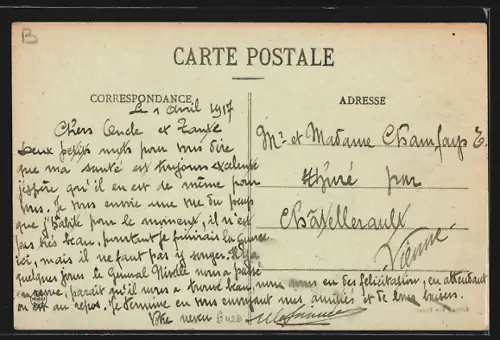 B
CARTE POSTALE
CORRESPONDANCE
ADRESSE
Le 1 Avril 1917
Chers Oncle et Tante
Deux petits mots pour vous dire
que ma santé est toujours excelente
j'espère qu'il en est de même pour
vous. Je vous envoie une vue du pays
que j'habite pour le moment, il n'est
pas très beau, pourtant je finirais la guerre
ici, mais il ne faut pas y songer. Il y a
quelques jours le Général Nivelle nous a passé
en revue, parait qu'il nous a trouvé beau, nous avons eu des félicitation, en attendant
on est au repos. Je termine en vous envoyant mes amitiés et de bons baisers.
Votre neveu
Mr et Madame E.
Thuré par
Chatellerault
Vienne